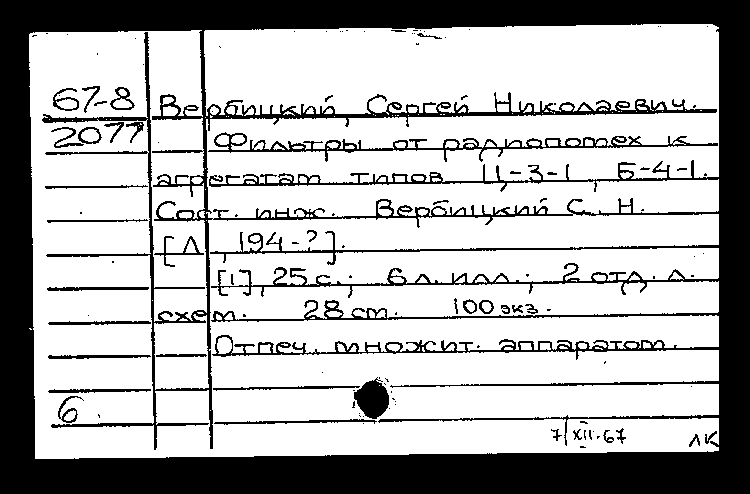 67-8 Вербицкий, Сергей Николаевич.
2077 Фильтры от радиопомех к
агрегатам типов Ц-3-1, Б-4-1.
Сост. инж. Вербицкий С. Н.
[Л., 194-?].
[1], 25 с.; 6 л. илл.; 2 отд. л.
схем. 28 см. 100 экз.
Отпеч. множит. аппаратом.
6.
7/XII-67 ЛК